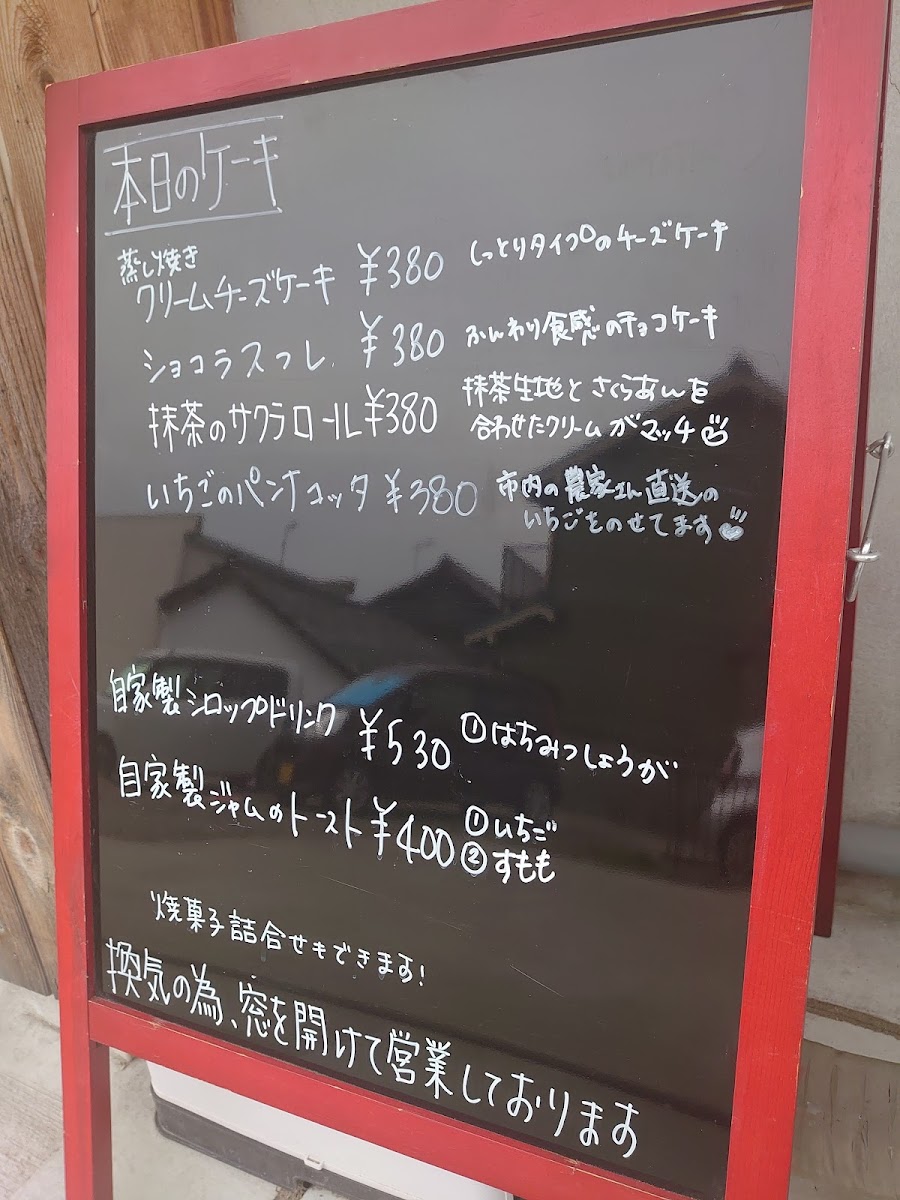 本日のケーキ
蒸し焼き
クリームチーズケーキ ¥380 しっとりタイプのチーズケーキ
ショコラスフレ ¥380 ふんわり食感のチョコケーキ
抹茶のサクラロール ¥380 抹茶生地とさくらあんを
合わせたクリームがマッチ
いちごのパンナコッタ ¥380 市内の農家さん直送の
いちごをのせてます
自家製シロップドリンク ¥530 ①はちみつしょうが
自家製ジャムのトースト ¥400 ①いちご
②すもも
焼菓子詰合せもできます!
換気の為、窓を開けて営業しております